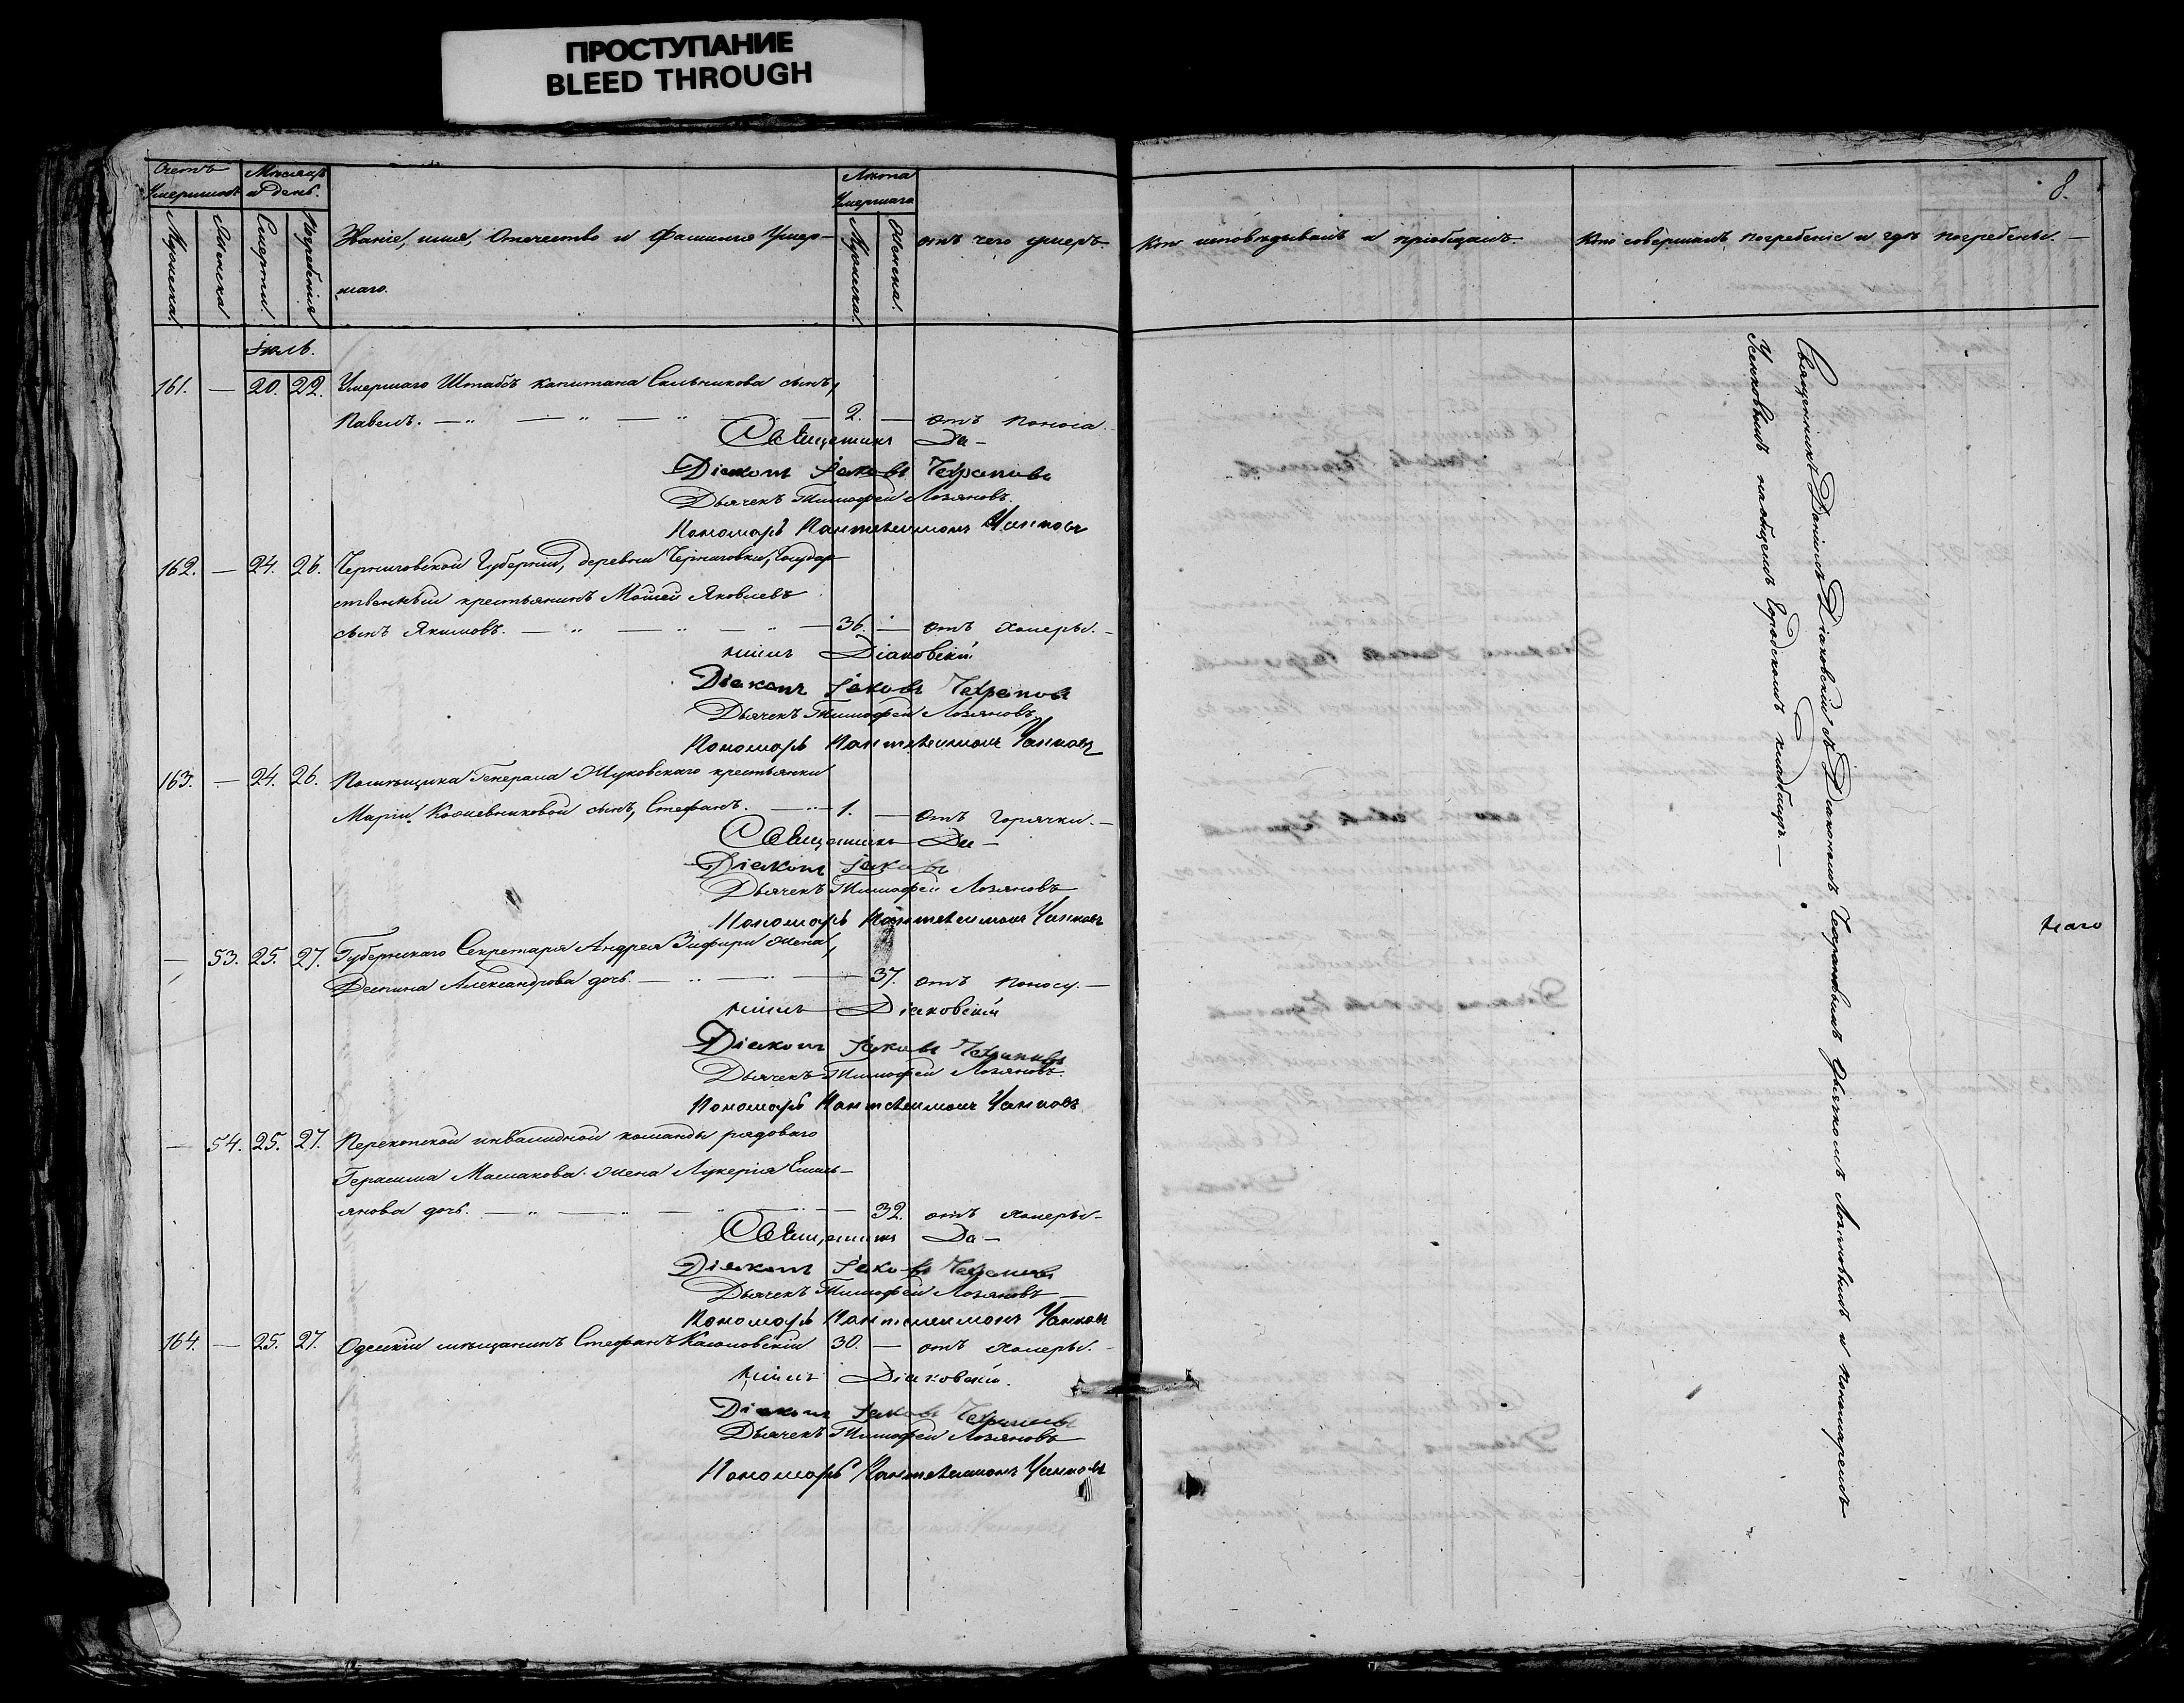 ПРОСТУПАНИЕ
BLEED THROUGH
Счетъ Умершихъ
Мѣсяцъ и День.
Лѣта Умершаго
8.
Мужеска.
Женска
Смерти.
Погребенія
Званіе, имя, Отечество и Фамилія Умер-
шаго.
Мужеска.
Женска.
отъ чего умеръ.
Кто исповѣдывалъ и пріобщалъ.
Кто совершалъ погребеніе и гдѣ погребены. —
Іюль.
161. — 20. 22. Умершаго Штабсъ Капитана сынъ,
Павелъ. — 2. — отъ поноса.
Священникъ Да-
Діаконъ Іаковъ
Дьячекъ Тимофей Лозяновъ.
Пономарь Пантелеимонъ
162. — 24. 26. Черниговской Губерніи, деревни Черниговки, Государ-
ственный крестьянинъ Моисей Яковлевъ
сынъ Якимовъ. — 36. — отъ холеры. —
ніилъ Діаковскій
Діаконъ Іаковъ
Дьячекъ Тимофей Лозяновъ
Пономарь Пантелеимонъ
163. — 24. 26. Помѣщика Генерала Жуковскаго крестьянки
Маріи Кожевниковой сынъ, Стефанъ. — 1. — отъ Горячки. —
Священникъ Да-
Діаконъ Іаковъ
Дьячекъ Тимофей Лозяновъ
Пономарь Пантелеимонъ
— 53. 25. 27. Губернскаго Секретаря Андрея жена,
Деспина Александрова дочь. — 37. отъ поносу. —
ніилъ Діаковскій
Діаконъ Іаковъ
Дьячекъ Тимофей Лозяновъ.
Пономарь Пантелеимонъ
— 54. 25. 27. Перекопской инвалидной команды рядоваго
Герасима Маслакова жена Лукерія Емель-
янова дочь. — 32. отъ холеры-
Священникъ Да-
Діаконъ Іаковъ
Дьячекъ Тимофей Лозяновъ
Пономарь Пантелеимонъ
164. — 25. 27. Одескій мѣщанинъ Стефанъ 30. — отъ холеры. -
ніилъ Діаковскій.
Діаконъ Іаковъ
Дьячекъ Тимофей Лозяновъ
Пономарь Пантелеимонъ
Священникъ Даніилъ Діаковскій съ Діакономъ Дьячкомъ Лозяновымъ и пономаремъ
на общемъ Городскомъ кладбищѣ. —
наго